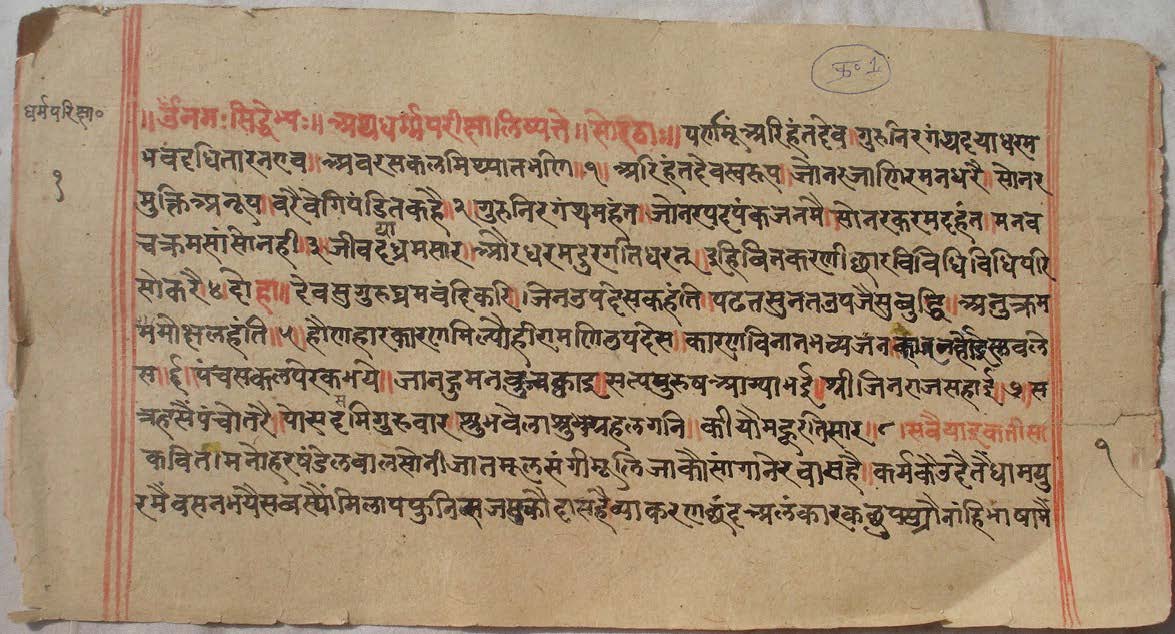 क्र॰ 1
धर्मपरिक्षा॰
१
॥ ॐ नमः सिद्धेभ्यः॥ अथ धर्म्मपरीक्षा लिष्यते॥ सोरठा॥ पणमूं अरिहंत देव गुरु निरगंथ दया धरम
भवदधि तारन एव अवर सकल मिथ्यात भणि १ अरिहंत देव स्वरूप जो नर जाणि मन धरै सो नर
मुक्ति अनूप वरै वेगि पंडित कहै २ गुरु निरगंथ महंत जो नर पद पंकज नमै सो नर करम दहंत मन व
च क्रम सांसो नही ३ जीव दया ध्रम सार और धरम दुरगति धरन इहि विन करणी छार विविधि विधि परि
सो करै ४ दोहा॥ देव सुगुरु ध्रम वंदि करि जिन उपदेस कहंति पढत सुनत उपजै सुबुद्धि अनुक्रम
मोक्ष लहंति ५ होणहार कारण मिल्यौ हीरामणि उपदेस कारण विना न भव्य जन
स ६ पंच सकल परिक भये सत्य पुरुष आग्या भई श्री जिनराज सहाई ७ स
त्रहसै पंचोतरै पोस दसमि गुरुवार सुभ वेला सुभ लगनि कीयौ महूरति सार ८ सवैया इकतीसा
कवित मनोहर षंडेलवाल सोनी जाति मूलसंगी मूलि जाकौ सांगानेरि वास है कर्म कै उदै तै धामपु
र मै वसन भयै सब स्यौं मिलाप फुनि कौ दास है व्याकरण छंद अलंकार कछु पढ्यौ नांहि भाषा मै
१